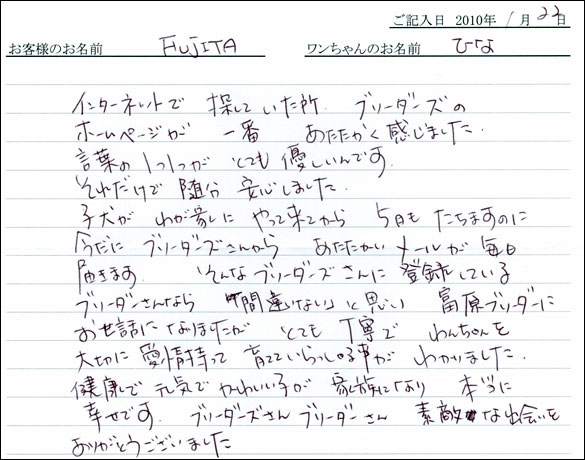 ご記入日 2010年 1月 23日
お客様のお名前 FUJITA ワンちゃんのお名前 ひな
インターネットで 探していた所 ブリーダーズの
ホームページが 一番 あたたかく感じました.
言葉の1つ1つが とても優しいんです.
それだけで 随分 安心しました.
子犬が わが家に やって来てから 5日もたちますのに
今だに ブリーダーズさんから あたたかいメールが毎日
届きます. そんなブリーダーズさんに登録している
ブリーダーさんなら 「間違いない」と思い 富原ブリーダーに
お世話になりましたが とても丁寧で わんちゃんを
大切に 愛情持って 育てていらっしゃる事が わかりました.
健康で 元気で かわいい子が 家族になり 本当に
幸せです. ブリーダーズさん ブリーダーさん 素敵な出会いを
ありがとうございました